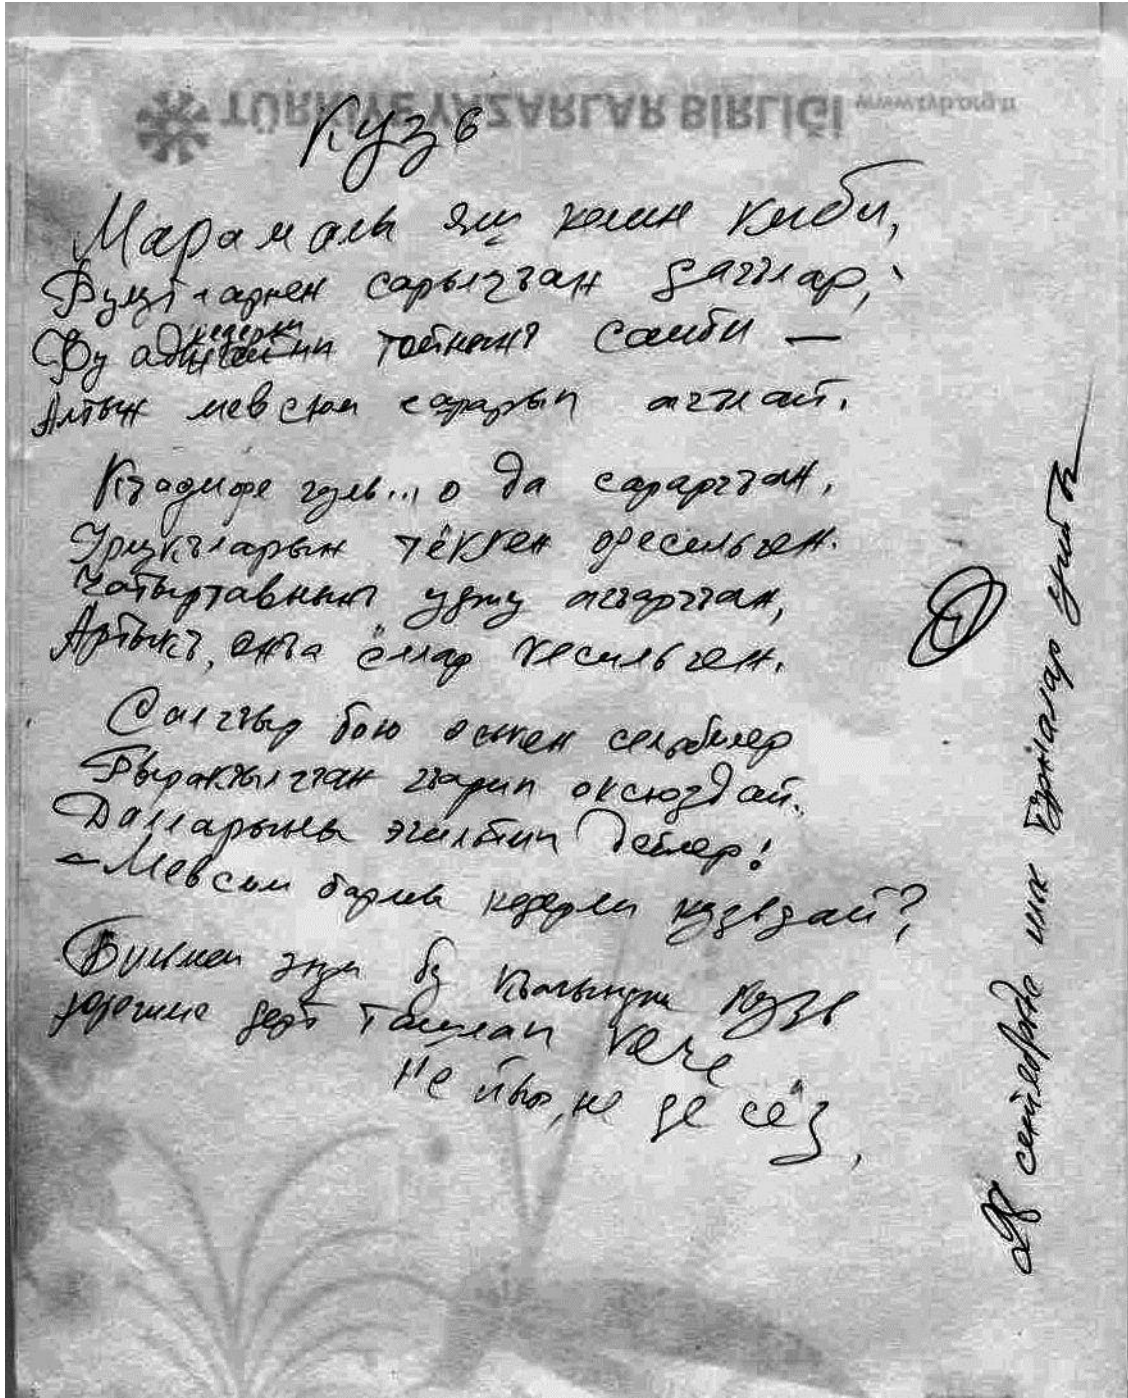 TÜRKİYE YAZARLAR BİRLİĞİ www.tyb.org.tr
Кузь
Марамалы яш келин киби,
Булутларнен сарылгъан дагълар,
Бу кедерли тойнынъ саиби —
Алтын мевсим сарарып агълай.
Къадифе гуль... о да сараргъан,
Япракъларын тёккен эсильген.
Чатыртавнынъ уджу агъаргъан,
Артыкъ, онъа ёллар кесильген.
Салгъыр бою оськен сельбилер
Быракъылгъан гъарип оксюздай.
Далларыны эгильтип дейлер:
— Мевсим бармы кедерли кузьдай?
Бильмем энди бу къалынджа кузь
юрегиме дерт ташлап кече
Не йыр, не де сёз,
28 сентябрьде илк турналар учты